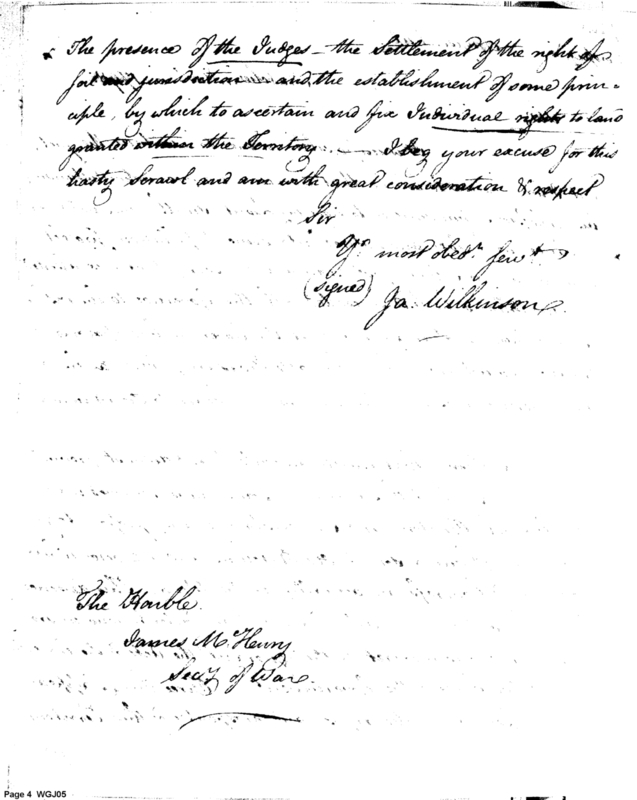 The presence of the Judges – the Settlement of the right of
soil and jurisdiction – and the establishment of some prin=
ciple, by which to ascertain and fix Individual rights to land
granted within the Territory — I beg your excuse for this
hasty Scrawl and am with great consideration & respect
Sir
Yr. most obedt. servt.
(signed) Ja. Wilkinson
The Honble.
James McHenry
Secy of War.
Page 4 WGJ05